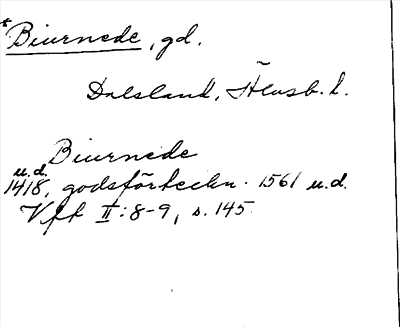 * Biurnede, gd.
Dalsland, Älvsb. l.
Biurnede
u.d.
1418, godsförteckn. 1561 u.d.
Vft II:8-9, s. 145